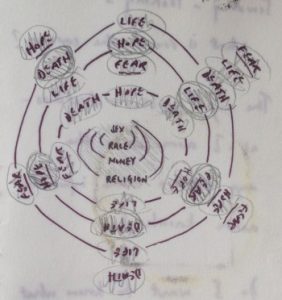 LIFE
HOPE
HOPE
FEAR
FEAR
DEATH
LIFE
DEATH
LIFE
LIFE
DEATH
HOPE
DEATH
SEX
RACE
MONEY
RELIGION
FEAR
HOPE
FEAR
HOPE
FEAR
FEAR
LIFE
DEATH
LIFE
DEATH